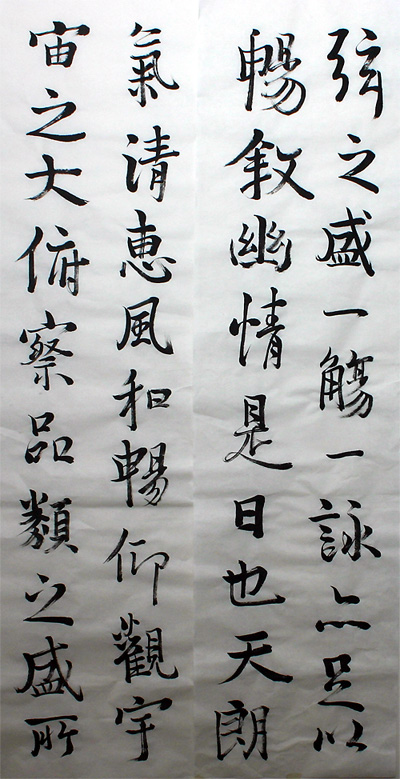 弦之盛一觴一詠亦足以
暢敘幽情是日也天朗
氣清惠風和暢仰觀宇
宙之大俯察品類之盛所